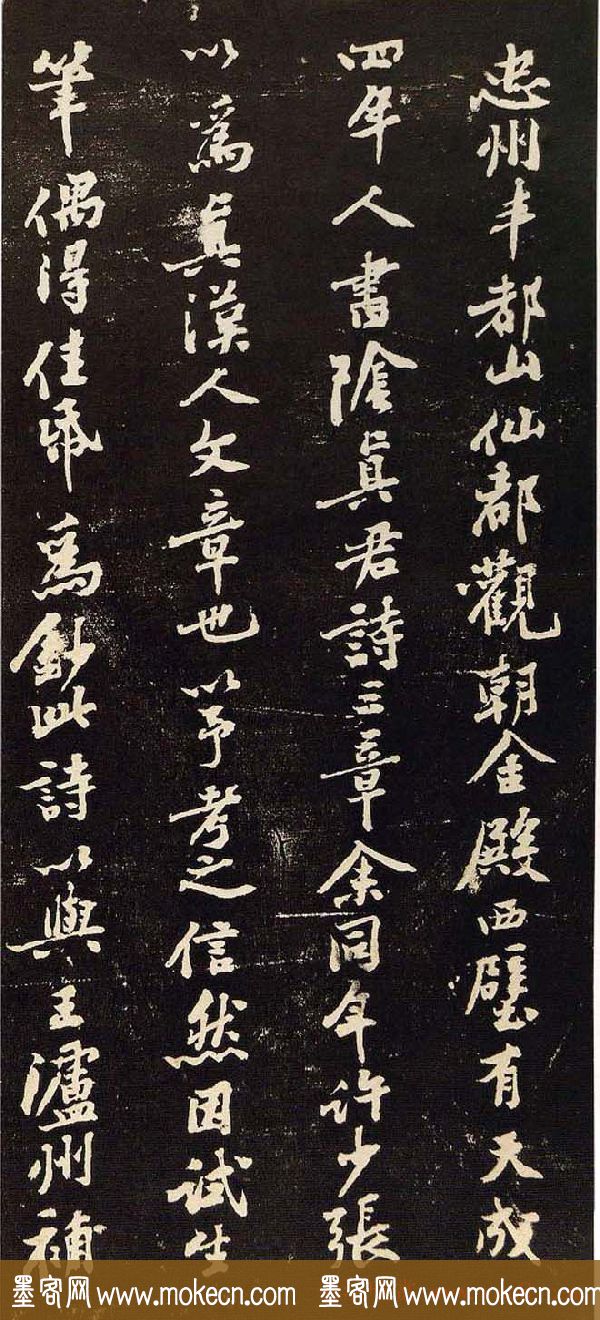 忠州丰都山仙都觀朝金殿西壁有天成
四年人書陰真君詩三章余同年許少張
以為真漢人文章也以予考之信然因試生
筆偶得佳帋為鈔此詩以與王瀘州補
墨客网 www.mokecn.com 墨客网 www.mokecn.com